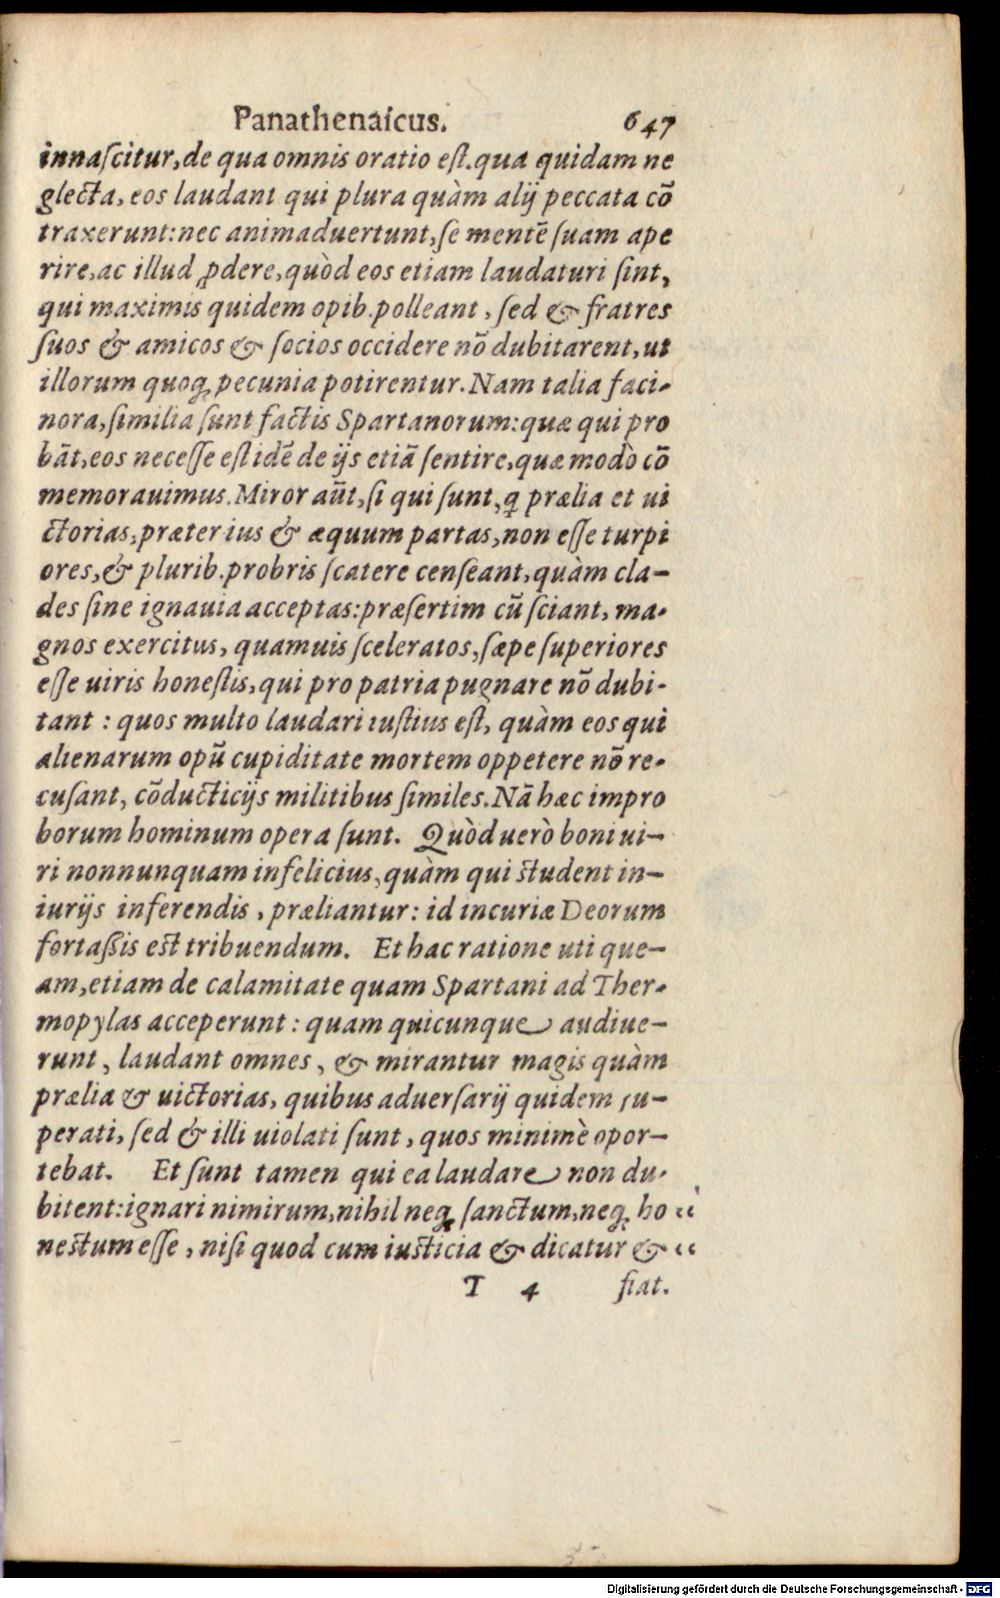 Panathenaicus. 647
innaſcitur, de qua omnis oratio eſt. qua quidam ne
glecta, eos laudant qui plura quàm alij peccata cõ
traxerunt: nec animaduertunt, ſe mentẽ ſuam ape
rire, ac illud ꝓdere, quòd eos etiam laudaturi ſint,
qui maximis quidem opib. polleant, ſed & fratres
ſuos & amicos & ſocios occidere nõ dubitarent, ut
illorum quoq; pecunia potirentur. Nam talia faci-
nora, ſimilia ſunt factis Spartanorum: quæ qui pro
bãt, eos neceſſe eſt idẽ de ijs etiã ſentire, quæ modò cõ
memorauimus. Miror aũt, ſi qui ſunt, q prælia et ui
ctorias, præter ius & æquum partas, non eſſe turpi
ores, & plurib. probris ſcatere cenſeant, quàm cla-
des ſine ignauia acceptas: præſertim cũ ſciant, ma-
gnos exercitus, quamuis ſceleratos, ſæpe ſuperiores
eſſe uiris honeſtis, qui pro patria pugnare nõ dubi-
tant: quos multo laudari iuſtius eſt, quàm eos qui
alienarum opũ cupiditate mortem oppetere nõ re-
cuſant, cõducticijs militibus ſimiles. Nã hæc impro
borum hominum opera ſunt. Quòd uerò boni ui-
ri nonnunquam infelicius, quàm qui ſtudent in-
iurijs inferendis, præliantur: id incuriæ Deorum
fortaßis eſt tribuendum. Et hac ratione uti que-
am, etiam de calamitate quam Spartani ad Ther-
mopylas acceperunt: quam quicunque audiue-
runt, laudant omnes, & mirantur magis quàm
prælia & uictorias, quibus aduerſarij quidem ſu-
perati, ſed & illi uiolati ſunt, quos minimè opor-
tebat. Et ſunt tamen qui ea laudare non du-
bitent: ignari nimirum, nihil neq; ſanctum, neq; ho “
neſtum eſſe, niſi quod cum iuſticia & dicatur & “
T 4 fiat.
Digitalisierung gefördert durch die Deutsche Forschungsgemeinschaft - DFG